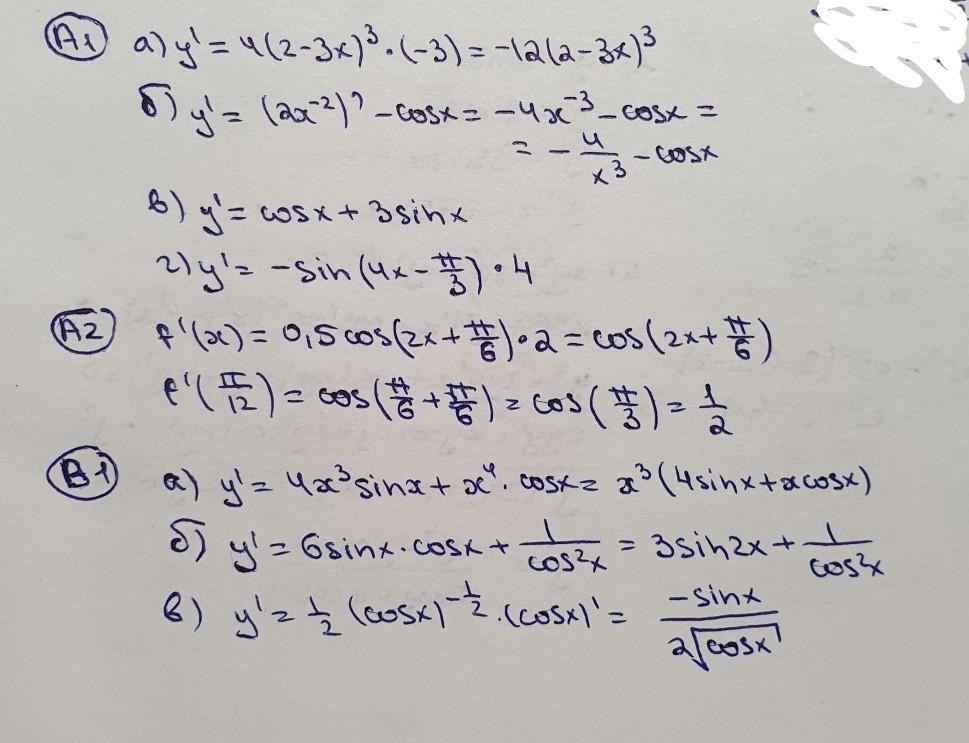 А1 а) y' = 4(2-3x)³ · (-3) = -12(2-3x)³
б) y' = (2x⁻²)' - cosx = -4x⁻³ - cosx =
= - 4/x³ - cosx
в) y' = cosx + 3sinx
г) y' = -sin(4x - π/3) · 4
А2 f'(x) = 0,5cos(2x + π/6) · 2 = cos(2x + π/6)
f'(π/12) = cos(π/6 + π/6) = cos(π/3) = 1/2
В1 а) y' = 4x³sinx + x⁴ · cosx = x³(4sinx + xcosx)
б) y' = 6sinx · cosx + 1/cos²x = 3sin2x + 1/cos²x
в) y' = 1/2 (cosx)^(-1/2) · (cosx)' = -sinx/2√cosx